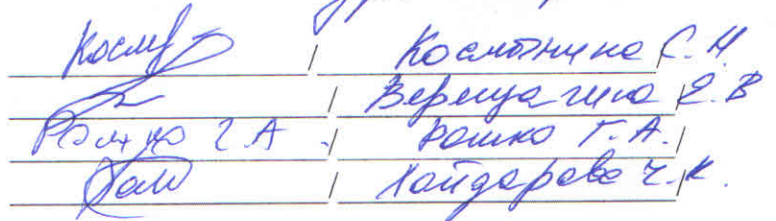 / Космынина С. Н.
/ Верещагина Е. В
Рошко Г. А. / Рошко Г. А. /
/ Хайдарова Ч. К.